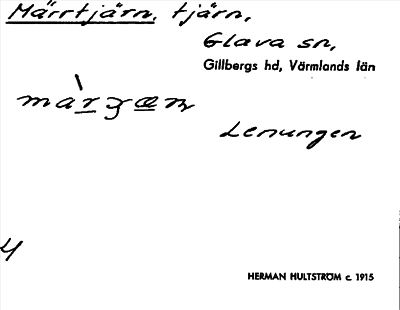 Märrtjärn, tjärn,
Glava sn,
Gillbergs hd, Värmlands län
Lenungen
4
HERMAN HULTSTRÖM c. 1915